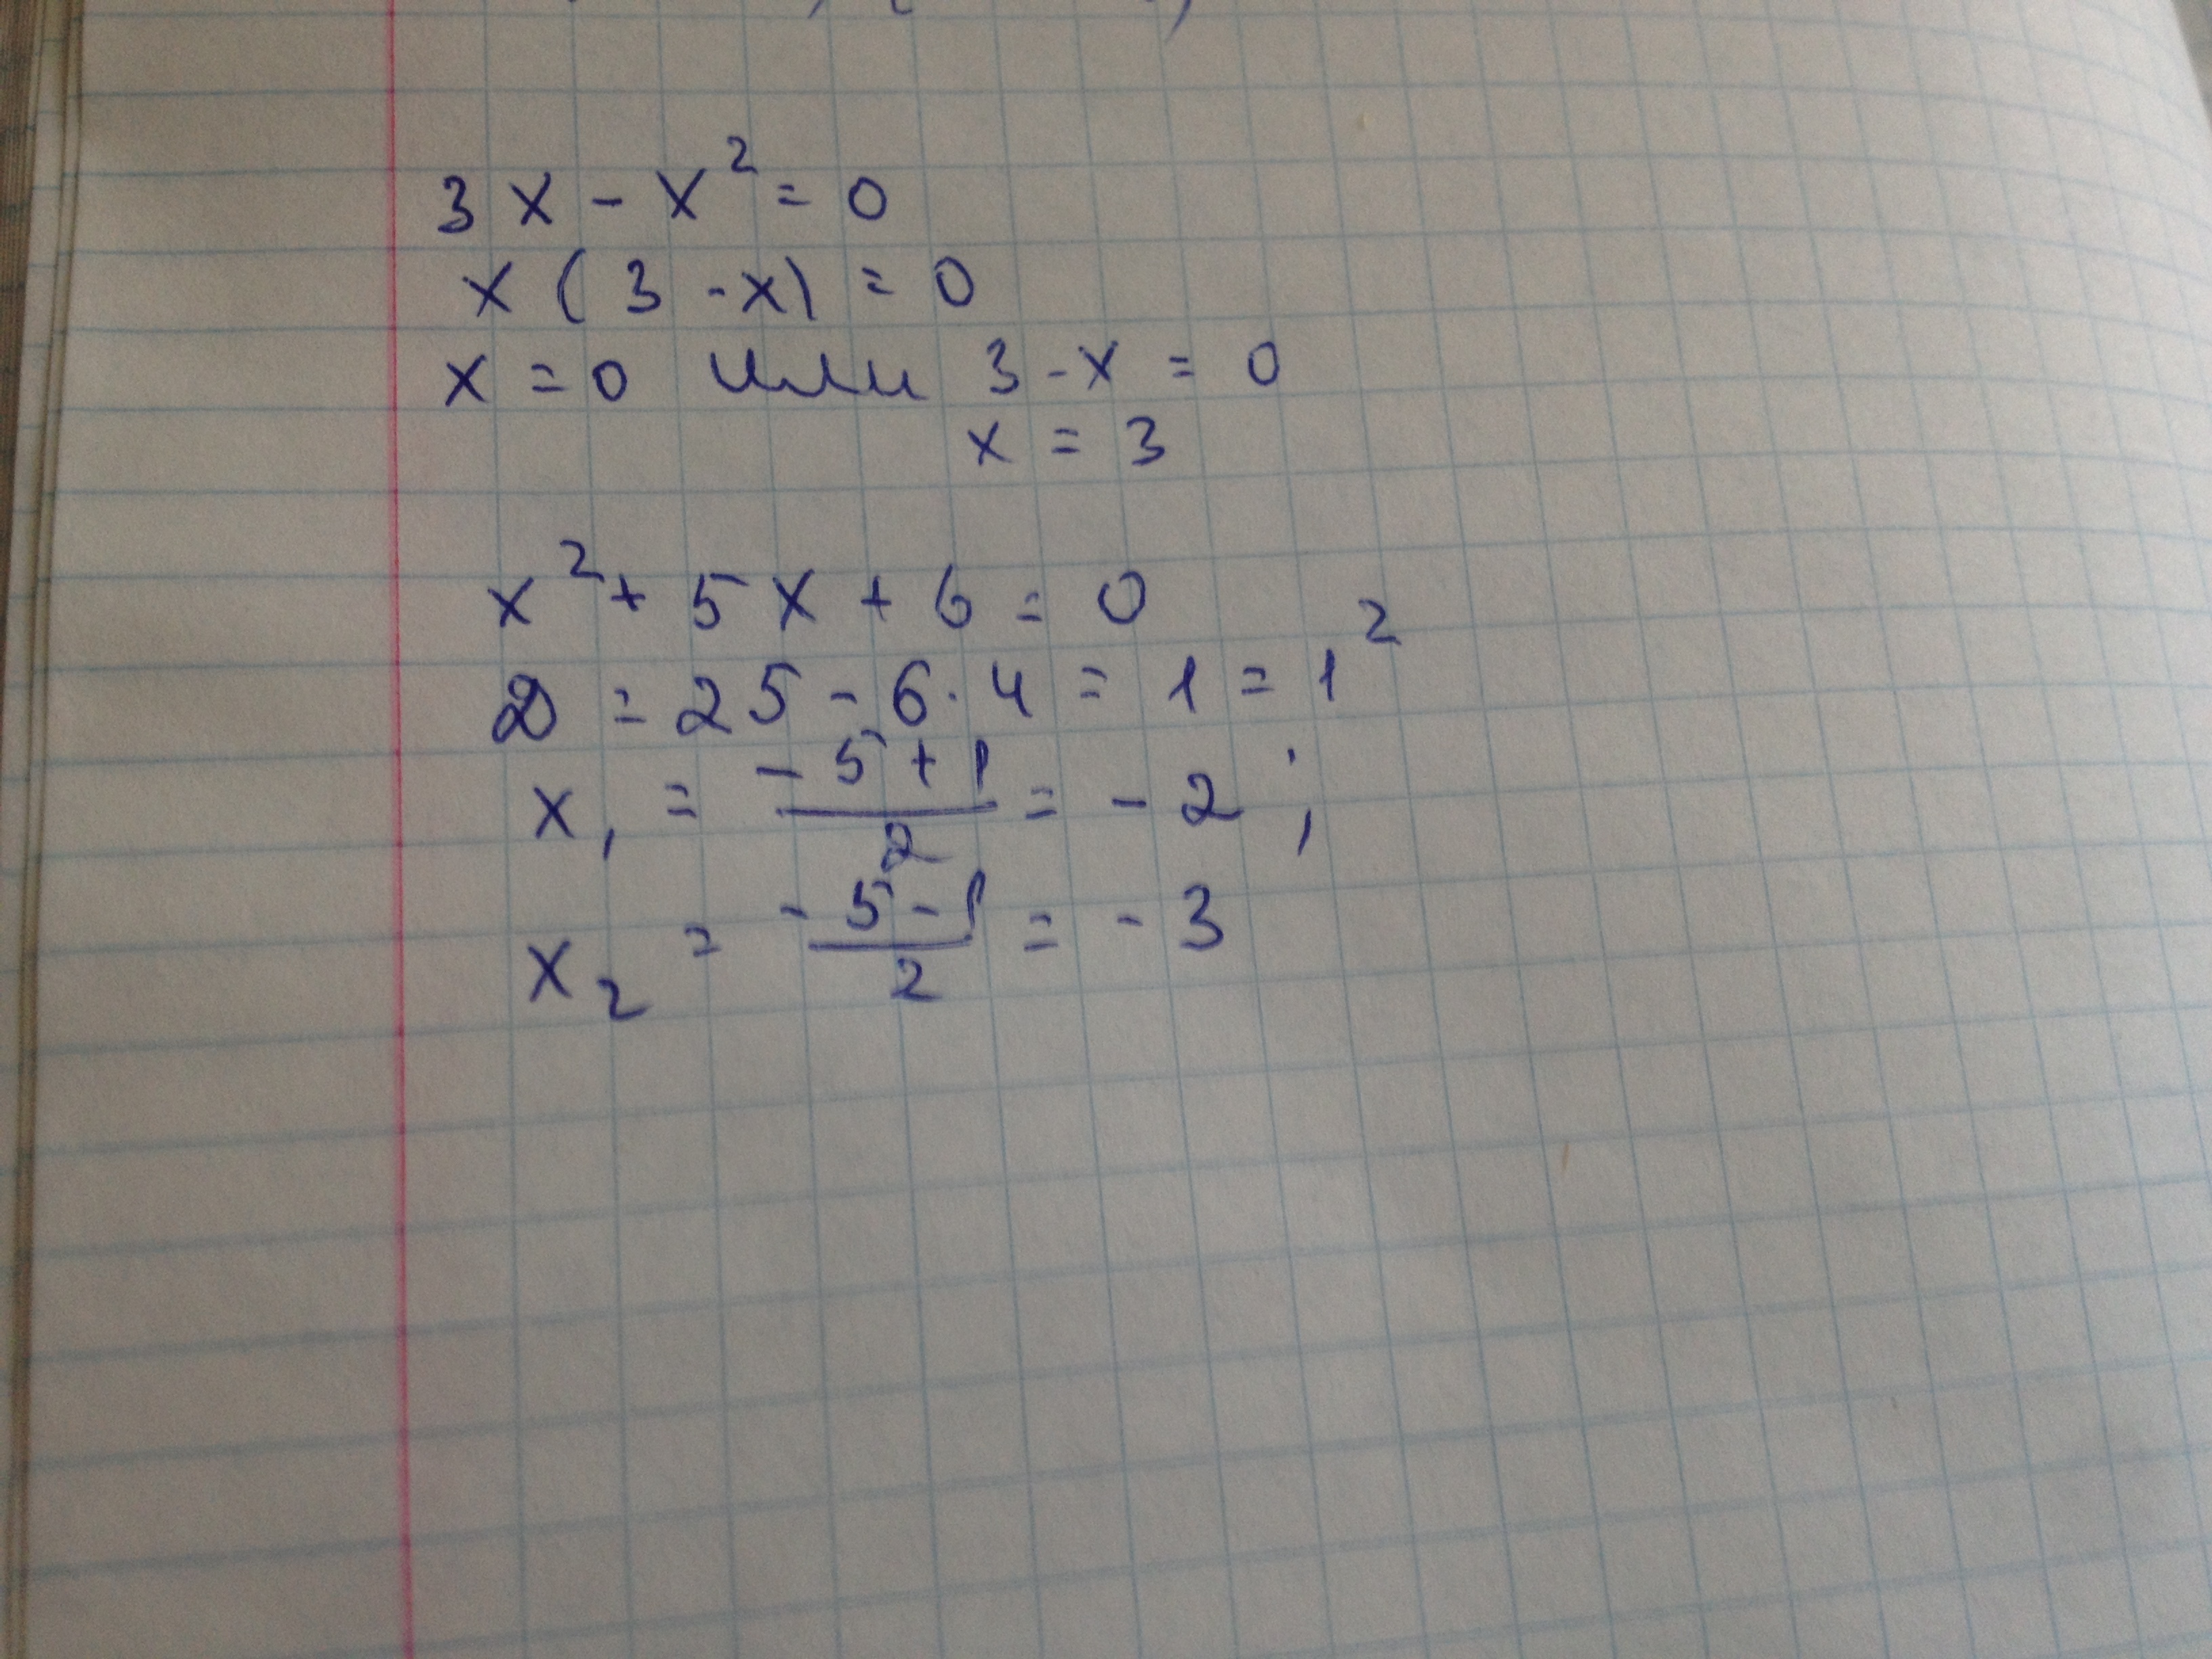 3x - x² = 0
x(3 - x) = 0
x = 0 или 3 - x = 0
x = 3
x² + 5x + 6 = 0
D = 25 - 6·4 = 1 = 1²
x₁ = (-5+1)/2 = -2;
x₂ = (-5-1)/2 = -3